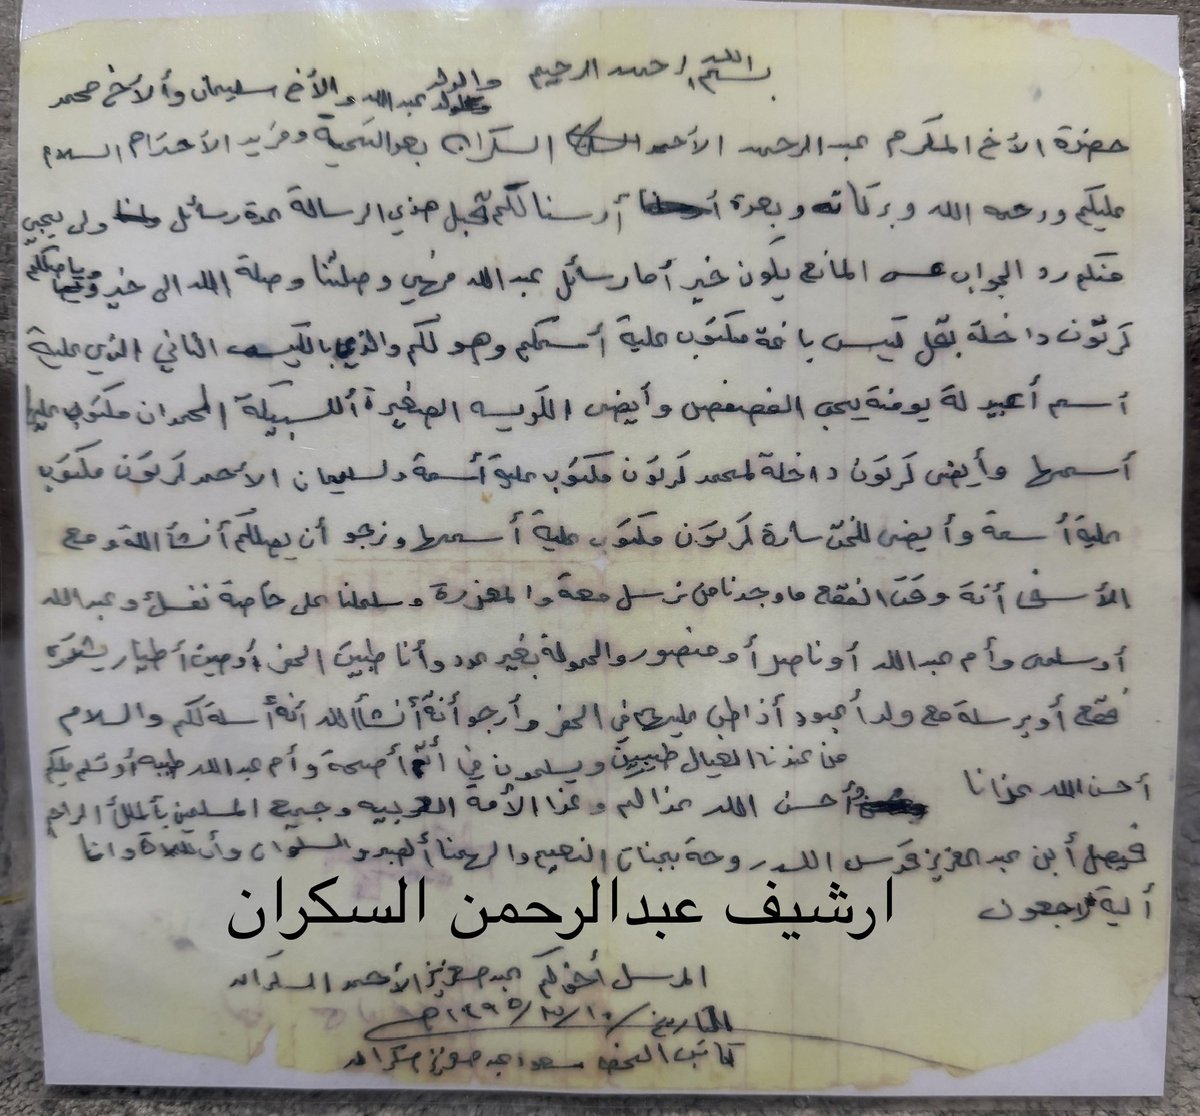 بسم الله الرحمن الرحيم
والولد عبدالله والأخ سليمان وألأخ محمد
حضرة الأخ المكرم عبدالرحمن الأحمد السكران بعد التحية ومزيد الأحترام السلام
عليكم ورحمه الله وبركاته وبعدة أرسنا لكم قبل هذي الرسالة عدة رسائل ولى يجي
منكم رد الجواب عسى المانع يكون خير أما رسائل عبدالله فهي وصلتنا وصلة الله الى خير
كرتون داخلة بقل كيس باغة مكتوب علية أسمكم وهو لكم والذي بالكيس الثاني الذي علية
أسم أعبيد لة يوفنة يجي الفصفص وأيضى الكويسه الصغيرة أللسبيكة المحمدان مكتوب عليها
أسمها وأيضى كرتون داخلة لمحمد كرتون مكتوب علية أسمة ولسليمان الأحمد كرتون مكتوب
علية أسمة وأيضى للخت سارة كرتون مكتوب علية أسمها ونرجو أن يصلكم أنشأ اللة ومع
الأسف أنة وقت الفقع ماوجدنا من نرسل معة والمعذرة وسلملنا على خاصة نفسك وعبدالله
أوسلمى وأم عبدالله أوناصر أومنصور والحمولة بغير عدد وأنا طبيت الحفر أوصيت أطيار يشتري
فقع أويرسلة مع ولد أعبود أذا طب عليها في الحفر وأرجو أنة أنشأ الله أنة أرسلة لكم والسلام
من عندنا العيال طيبين ويسلمون في أتم أصحة وأم عبدالله طيبه أوتسلم عليكم
أحسن الله عزانا
أحسن الله عزاكم وعزا الأمة العربيه وجميع المسلمين بألملك ألراحل
فيصل أبن عبدالعزيز قدس الله روحة بجنات النعيم والهمنا ألصبر والسلوان وأن لله وانا
ألية راجعون
ارشيف عبدالرحمن السكران
المرسل أخوكم عبدالعزيز الأحمد السكران
التاريخ ١٣٩٥هـ
كاتب الحف سعود عبدالعزيز سكران